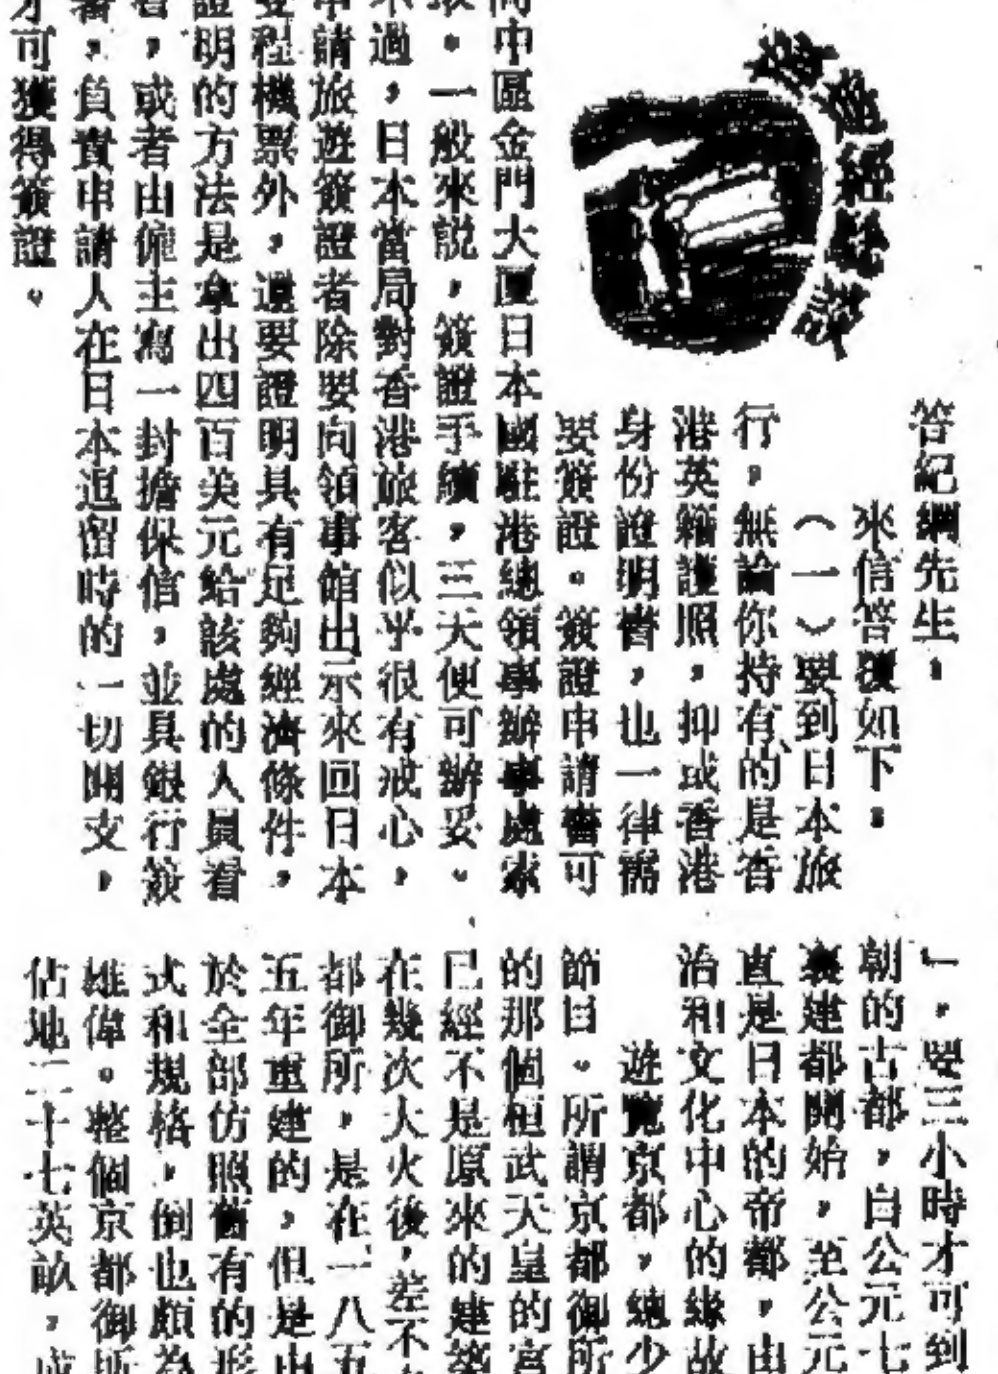 旅遊經緯談
答紀綱先生，
來信答覆如下：
（一）要到日本旅
行，無論你持有的是香
港英籍護照，抑或香港
身份證明書，也一律需
要簽證。簽證申請書可
向中區金門大厦日本國駐港總領事辦事處索
取。一般來説，簽證手續，三天便可辦妥。
不過，日本當局對香港旅客似乎很有戒心，
申請旅遊簽證者除要向領事館出示來回日本
雙程機票外，還要證明具有足夠經濟條件，
證明的方法是拿出四百美元給該處的人員看
看，或者由僱主寫一封擔保信，並具銀行簽
署，負責申請人在日本逗留時的一切開支，
才可獲得簽證。
」，要三小時才可到
朝的古都，自公元七
建都開始，至公元
直是日本的帝都，由
治和文化中心的緣故
遊覽京都，總少
節目。所謂京都御所
的那個桓武天皇的宮
已經不是原來的建築
在幾次大火後，差不
都御所，是在一八五
五年重建的，但是由
於全部仿照舊有的形
式和規格，倒也頗為
雄偉。整個京都御所
佔地二十七英畝，成